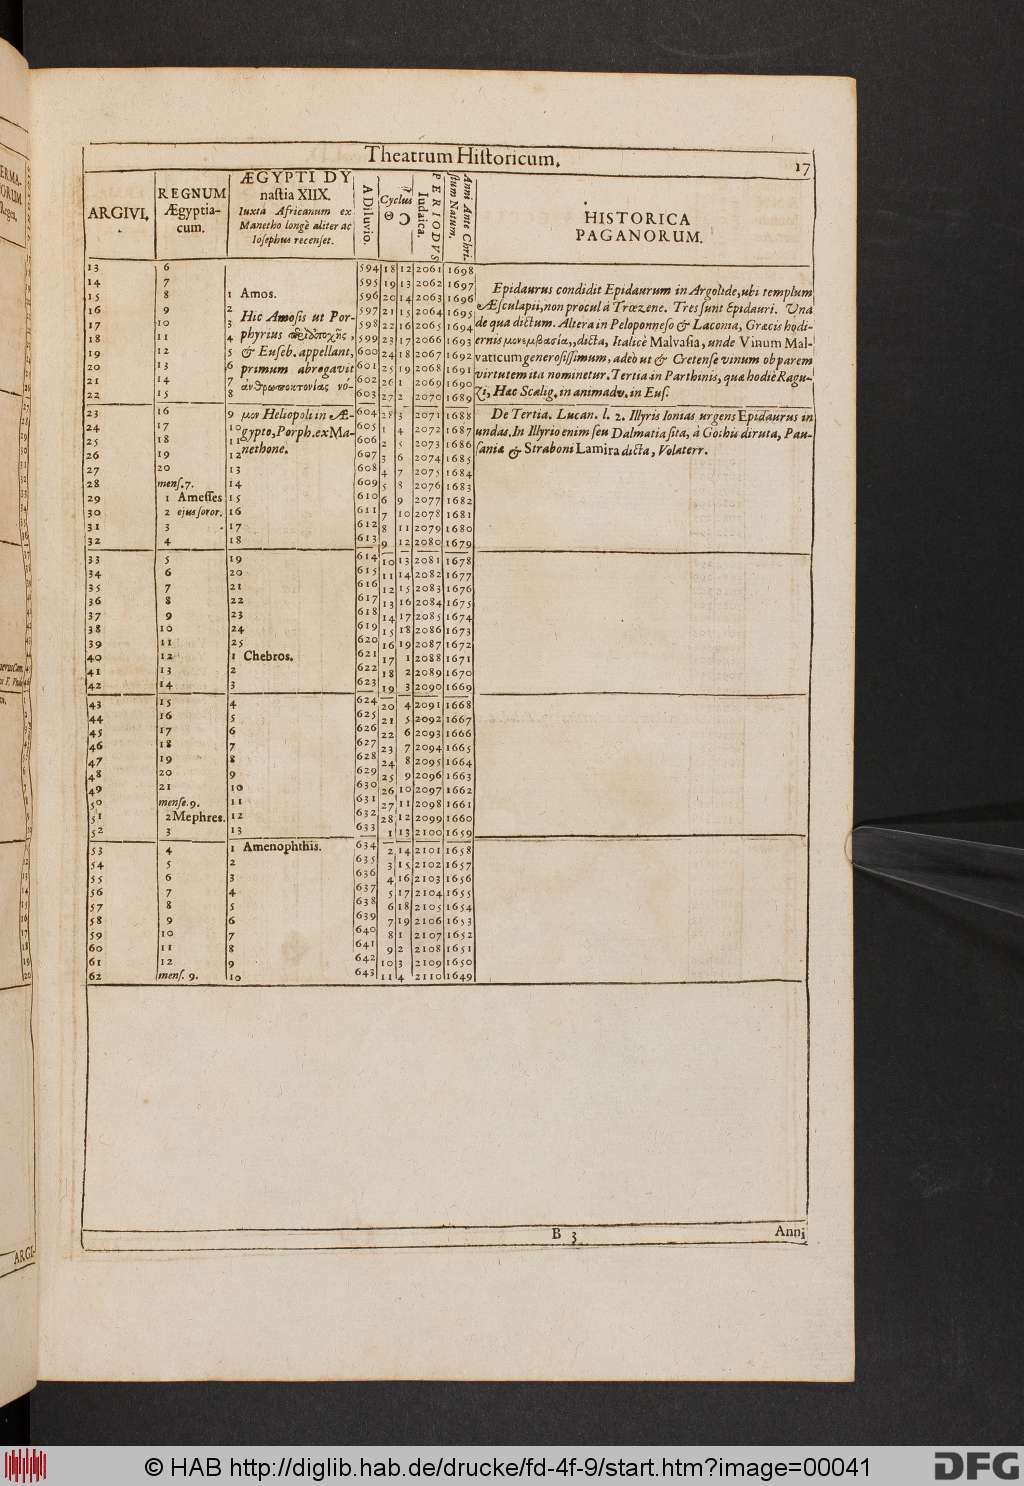 Theatrum Historicum.
17
ARGIVI.
REGNUM
Ægyptia-
cum.
ÆGYPTI DY
nastia XIIX.
Iuxta Africanum ex
Manetho longè aliter ac
Iosephus recenset.
A Diluvio.
Cyclus
PERIODVS
Iudaica.
Anni Ante Chri-
stum Natum.
HISTORICA
PAGANORUM.
13 6 594 18 12 2061 1698
14 7 595 19 13 2062 1697
15 8 1 Amos. 596 20 14 2063 1696
16 9 2 597 21 15 2064 1695
17 10 3 598 22 16 2065 1694
18 11 4 599 23 17 2066 1693
19 12 5 600 24 18 2067 1692
20 13 6 601 25 19 2068 1691
21 14 7 602 26 1 2069 1690
22 15 8 603 27 2 2070 1689
Hic Amosis ut Por-
phyrius
& Euseb. appellant,
primum abrogavit
ἀνθρωποκτονίας νό-
μον Heliopoli in Æ-
gypto, Porph. ex Ma-
nethone.
Epidaurus condidit Epidaurum in Argolide, ubi templum
Æsculapii, non procul à Trœzene. Tres sunt Epidauri. Una
de qua dictum. Altera in Peloponneso & Laconia, Græcis hodi-
ernis μονεμβασία, dicta, Italicè Malvasia, unde Vinum Mal-
vaticum generosissimum, adeò ut & Cretense vinum ob parem
virtutem ita nominetur. Tertia in Parthinis, quæ hodiè Ragu-
zi, Hæc Scalig. in animadv. in Eus.
23 16 9 604 28 3 2071 1688
24 17 10 605 1 4 2072 1687
25 18 11 606 2 5 2073 1686
26 19 12 607 3 6 2074 1685
27 20 13 608 4 7 2075 1684
28 mens. 7. 14 609 5 8 2076 1683
29 1 Amesses 15 610 6 9 2077 1682
30 2 ejus soror. 16 611 7 10 2078 1681
31 3 17 612 8 11 2079 1680
32 4 18 613 9 12 2080 1679
De Tertia. Lucan. l. 2. Illyris Ionias urgens Epidaurus in
undas. In Illyrio enim seu Dalmatia sita, à Gothis diruta, Pau-
saniæ & Straboni Lamira dicta, Volaterr.
33 5 19 614 10 13 2081 1678
34 6 20 615 11 14 2082 1677
35 7 21 616 12 15 2083 1676
36 8 22 617 13 16 2084 1675
37 9 23 618 14 17 2085 1674
38 10 24 619 15 18 2086 1673
39 11 25 620 16 19 2087 1672
40 12 1 Chebros. 621 17 1 2088 1671
41 13 2 622 18 2 2089 1670
42 14 3 623 19 3 2090 1669
43 15 4 624 20 4 2091 1668
44 16 5 625 21 5 2092 1667
45 17 6 626 22 6 2093 1666
46 18 7 627 23 7 2094 1665
47 19 8 628 24 8 2095 1664
48 20 9 629 25 9 2096 1663
49 21 10 630 26 10 2097 1662
50 mense. 9. 11 631 27 11 2098 1661
51 2 Mephres. 12 632 28 12 2099 1660
52 3 13 633 1 13 2100 1659
53 4 1 Amenophthis. 634 2 14 2101 1658
54 5 2 635 3 15 2102 1657
55 6 3 636 4 16 2103 1656
56 7 4 637 5 17 2104 1655
57 8 5 638 6 18 2105 1654
58 9 6 639 7 19 2106 1653
59 10 7 640 8 1 2107 1652
60 11 8 641 9 2 2108 1651
61 12 9 642 10 3 2109 1650
62 mens. 9. 10 643 11 4 2110 1649
B 3
Anni
ARGI-
© HAB http://diglib.hab.de/drucke/fd-4f-9/start.htm?image=00041
DFG